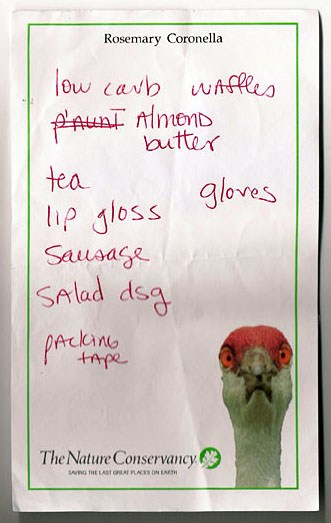 Rosemary Coronella
low carb waffles
p'aunt Almond
butter
tea
gloves
lip gloss
sausage
salad dsg
packing
tape
The Nature Conservancy
SAVING THE LAST GREAT PLACES ON EARTH